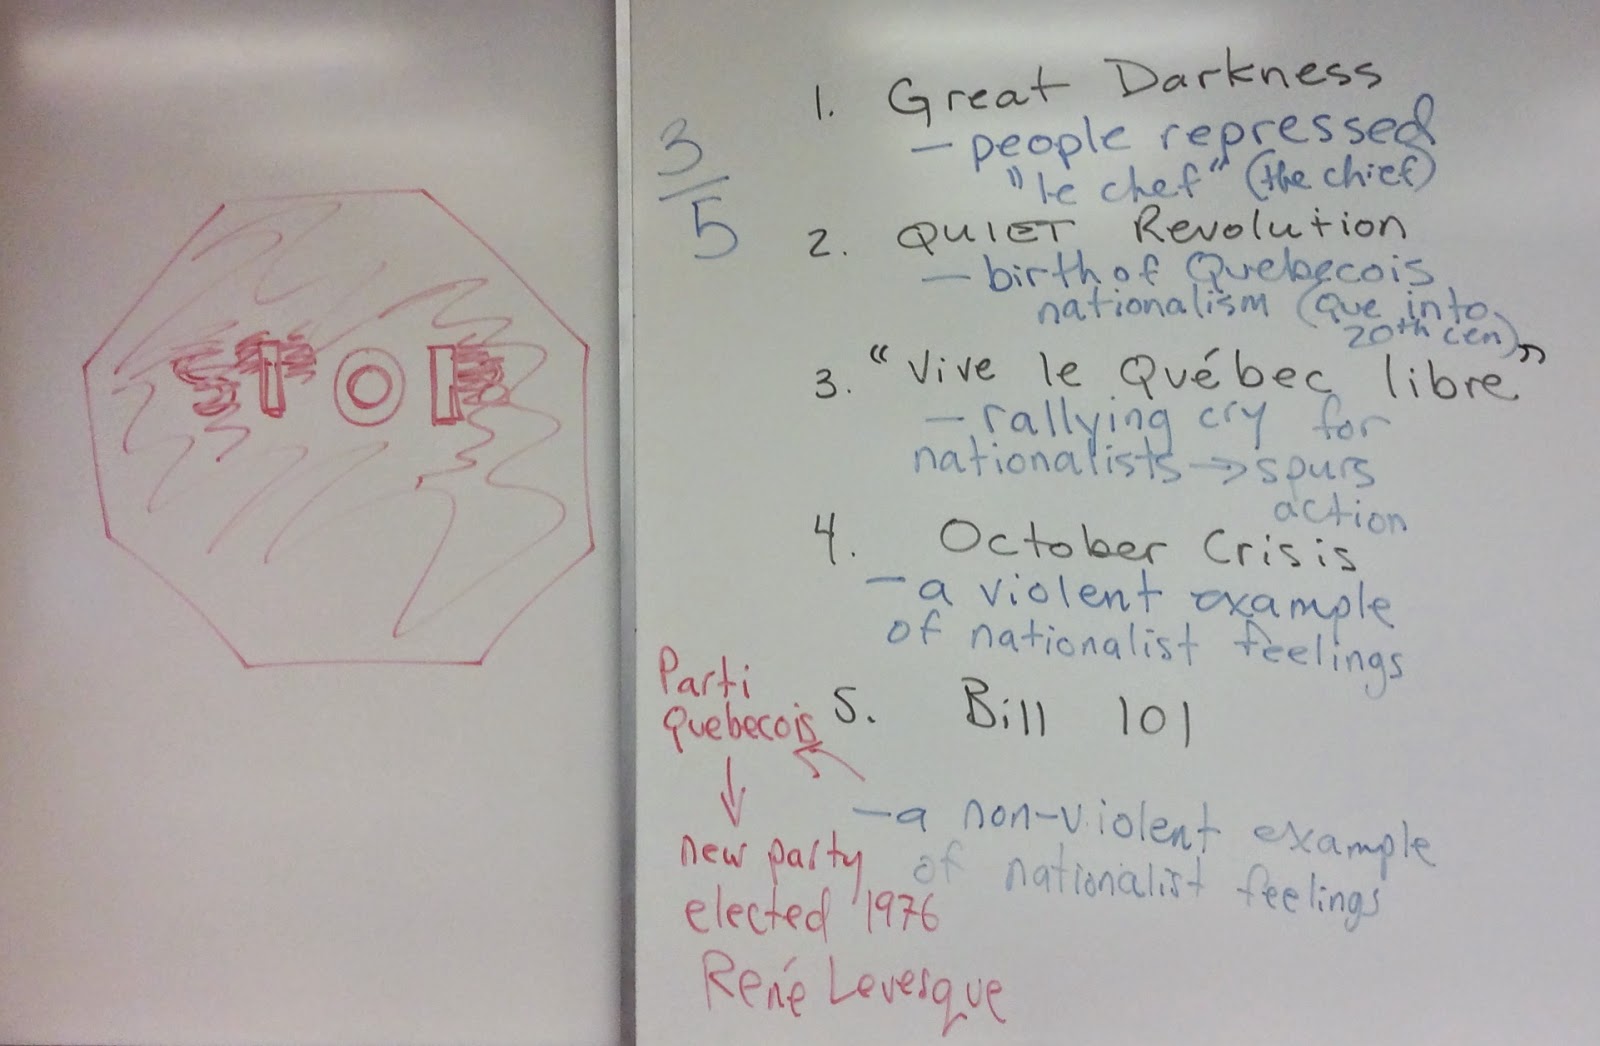 101
3/5
1. Great Darkness
– people repressed
"le chef" (the chief)
2. QUIET Revolution
– birth of Quebecois
nationalism (Que into
20th cen)
3. "Vive le Québec libre"
– rallying cry for
nationalists → spurs
action
4. October Crisis
– a violent example
of nationalist feelings
5. Bill 101
– a non-violent example
of nationalist feelings
Parti
Quebecois
↓
new party
elected 1976
René Levesque